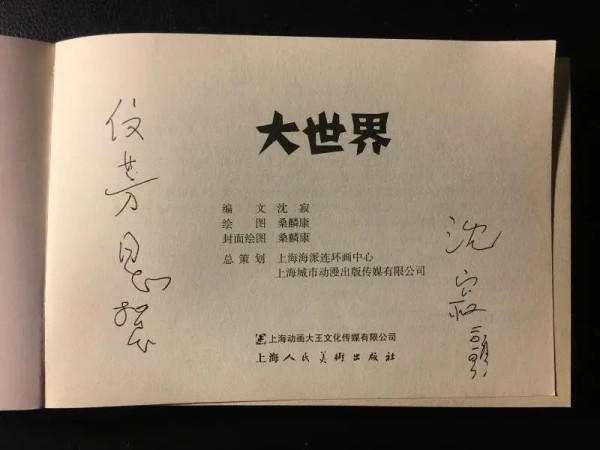 大世界
编 文 沈 寂
绘 图 桑麟康
封面绘图 桑麟康
总 策 划 上海海派连环画中心
上海城市动漫出版传媒有限公司
上海动画大王文化传媒有限公司
上海人民美術出版社
芳
沈寂